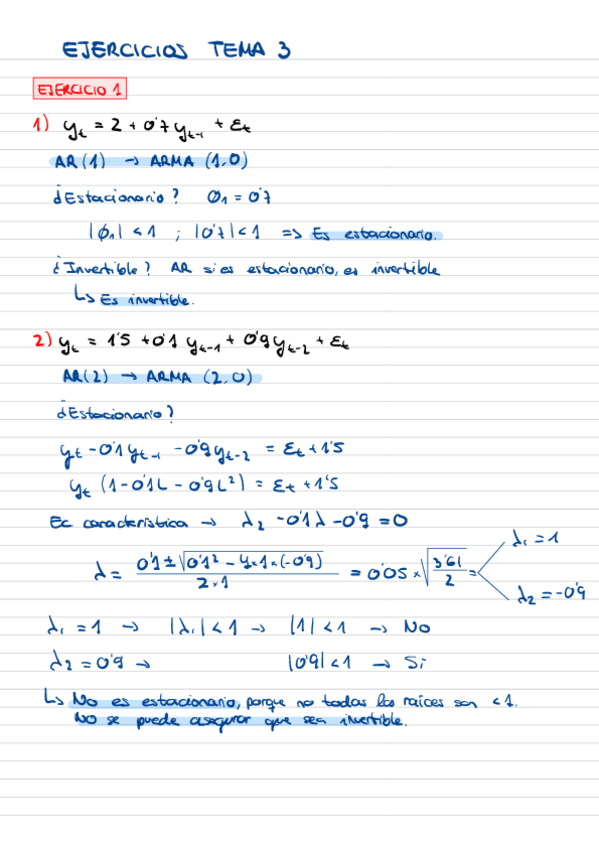 EJERCICIOS TEMA 3
EJERCICIO 1
1) yₜ = 2 + 0'7 yₜ₋₁ + Ɛₜ
AR(1) → ARMA (1,0)
¿Estacionario? Ø₁ = 0'7
|ϕ₁| < 1 ; |0'7| < 1 => Es estacionario.
¿Invertible? AR si es estacionario, es invertible
↳ Es invertible.
2) yₜ = 1'5 + 0'1 yₜ₋₁ + 0'9 yₜ₋₂ + Ɛₜ
AR(2) → ARMA (2,0)
¿Estacionario?
yₜ - 0'1 yₜ₋₁ - 0'9 yₜ₋₂ = Ɛₜ + 1'5
yₜ (1 - 0'1L - 0'9L²) = Ɛₜ + 1'5
Ec característica → λ₂ - 0'1 λ - 0'9 = 0
λ = 0'1 ± √(0'1² - 4×1×(-0'9)) / 2×1 = 0'05 × √(3'61/2) = λ₁ = 1
λ₂ = -0'9
λ₁ = 1 → |λ₁| < 1 → |1| < 1 → No
λ₂ = 0'9 → |0'9| < 1 → Si
↳ No es estacionario, porque no todas las raíces son < 1.
NO se puede asegurar que sea invertible.